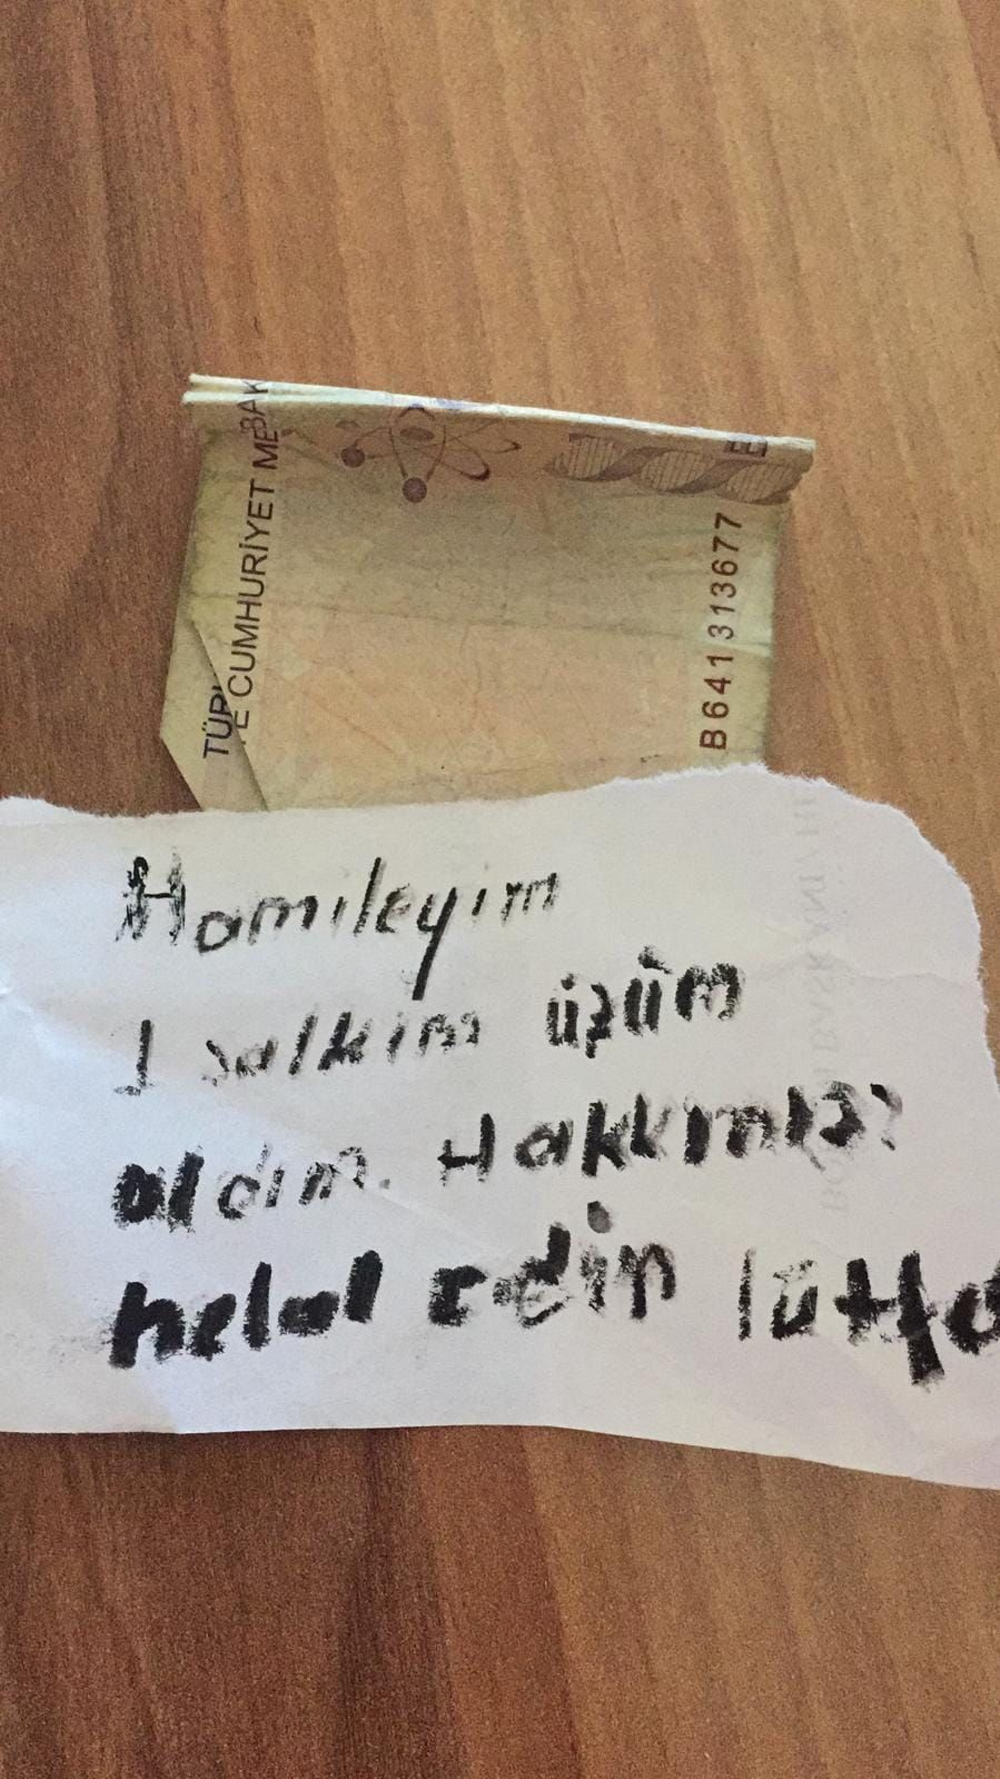 BAK
TÜR
E CUMHURİYET ME
E
B641313677
Hamileyim
1 salkım üzüm
aldım. Hakkınızı
helal edin lütfe